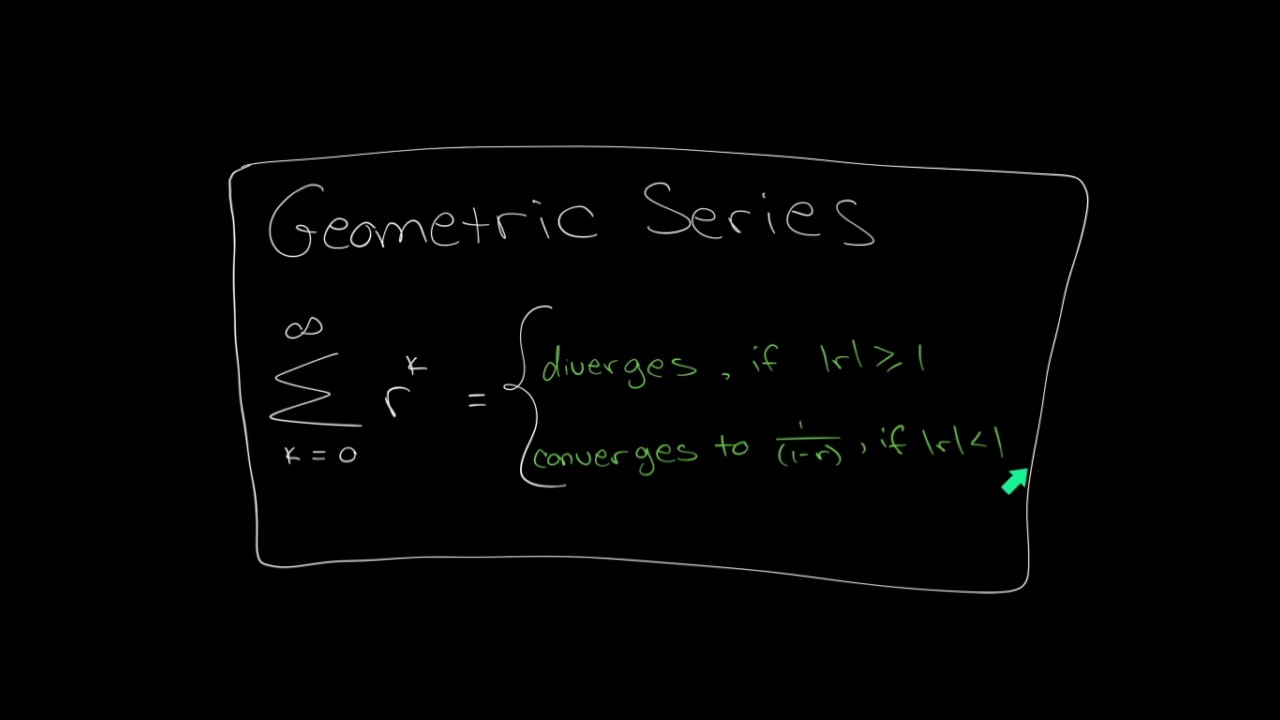 Geometric Series
∞
∑ r^k =
k = 0
diverges, if |r| ≥ 1
converges to 1/(1-r), if |r| < 1